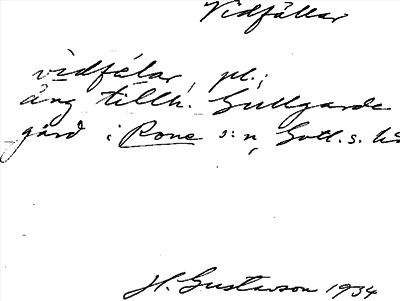 Vidfällar
vidfälar, pl.;
äng tillh. Gullgarde
gård i Rone s:n, Gotl. s.
H. Gustavson 1934